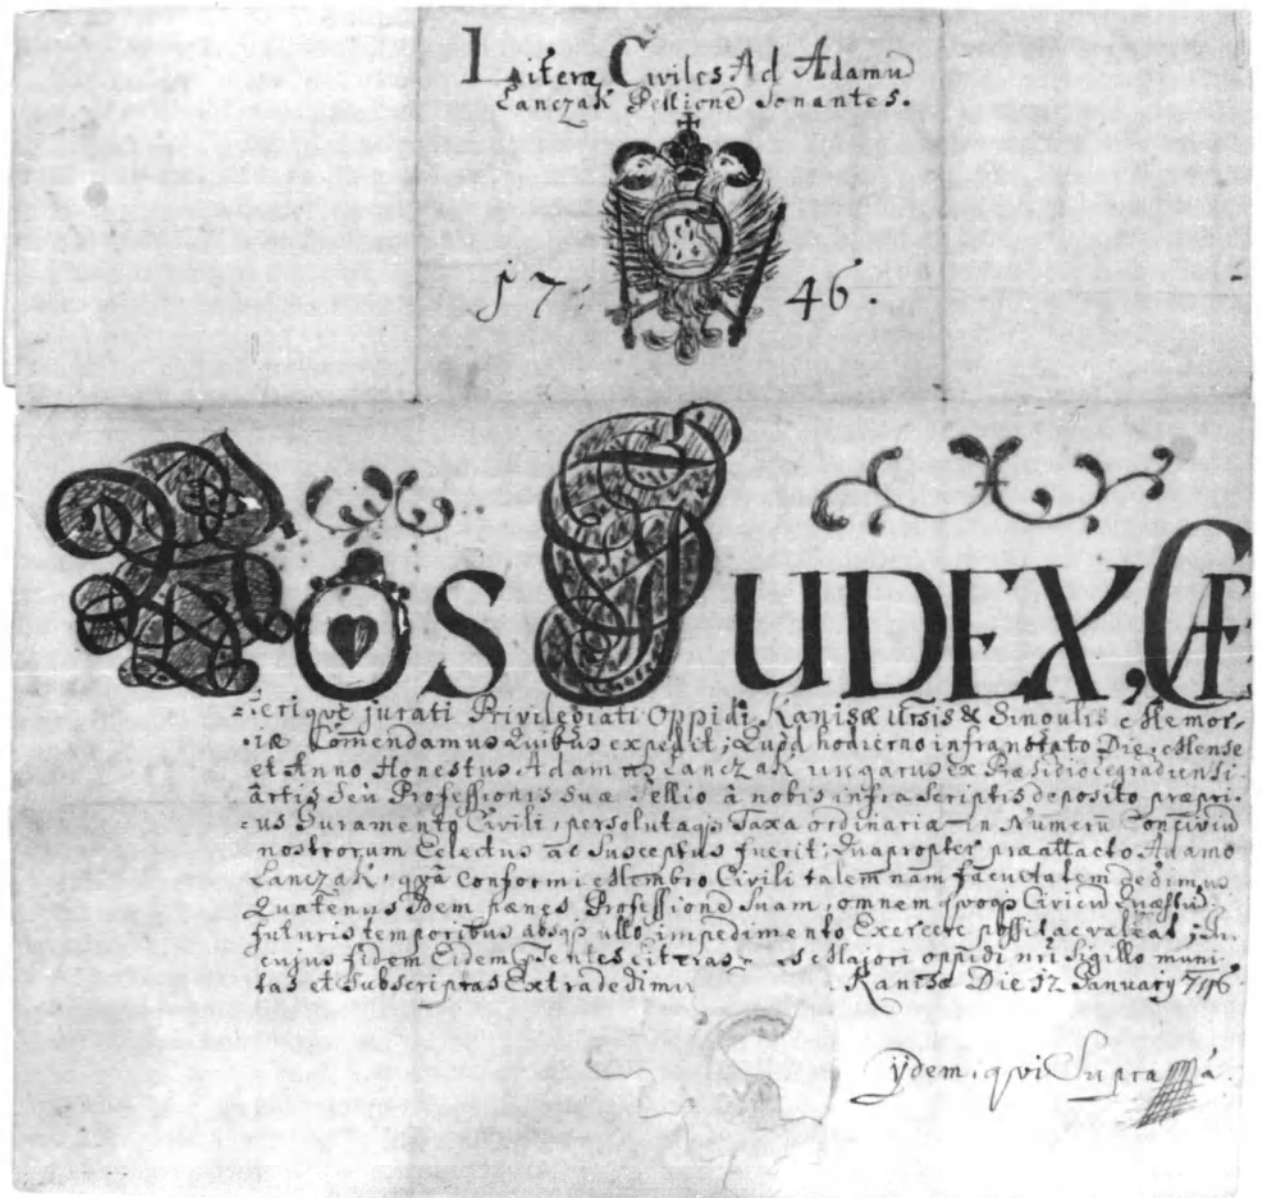 Literæ Civiles Ad Adamũ
Lanczak Pellionẽ Sonantes.
17 46.
Nos JUDEX, CÆ
=teriqve jurati Privilegiati Oppidi Kanisæ Ur̃sis & Singulis Memor-
iæ Com̃endamus Quibus expedit; Quòd hodierno infranotato Die, Mense
et Anno Honestus Adamus Lanczak ungarus ex Præsidio Legradiensi
ârtis Seù Professionis Suæ Pellio à nobis infra Scriptis deposito præpri-
=us Juramento Civili, persolutaq3 Taxa ordinaria in Numerũ Conciviũ
nostrorum Eelectus ac Susceptus fuerit; Quapropter præattacto Adamo
Lanczak, qvà Conformi Membro Civili talem nam facultatem dedimus
Quatenus Idem pænes Professionẽ Suam, omnem qvoq3 Civicũ Quæstũ
futuris temporibus absq3 ullo impedimento Exercere possit ac valeat; In
cujus fidem Eidem Pr̃sentes Literas Majori oppidi nr̃i Sigillo muni
tas et Subscriptas Extradedimu Kanisæ Die 12 January 746
ÿdem, qvi Supra